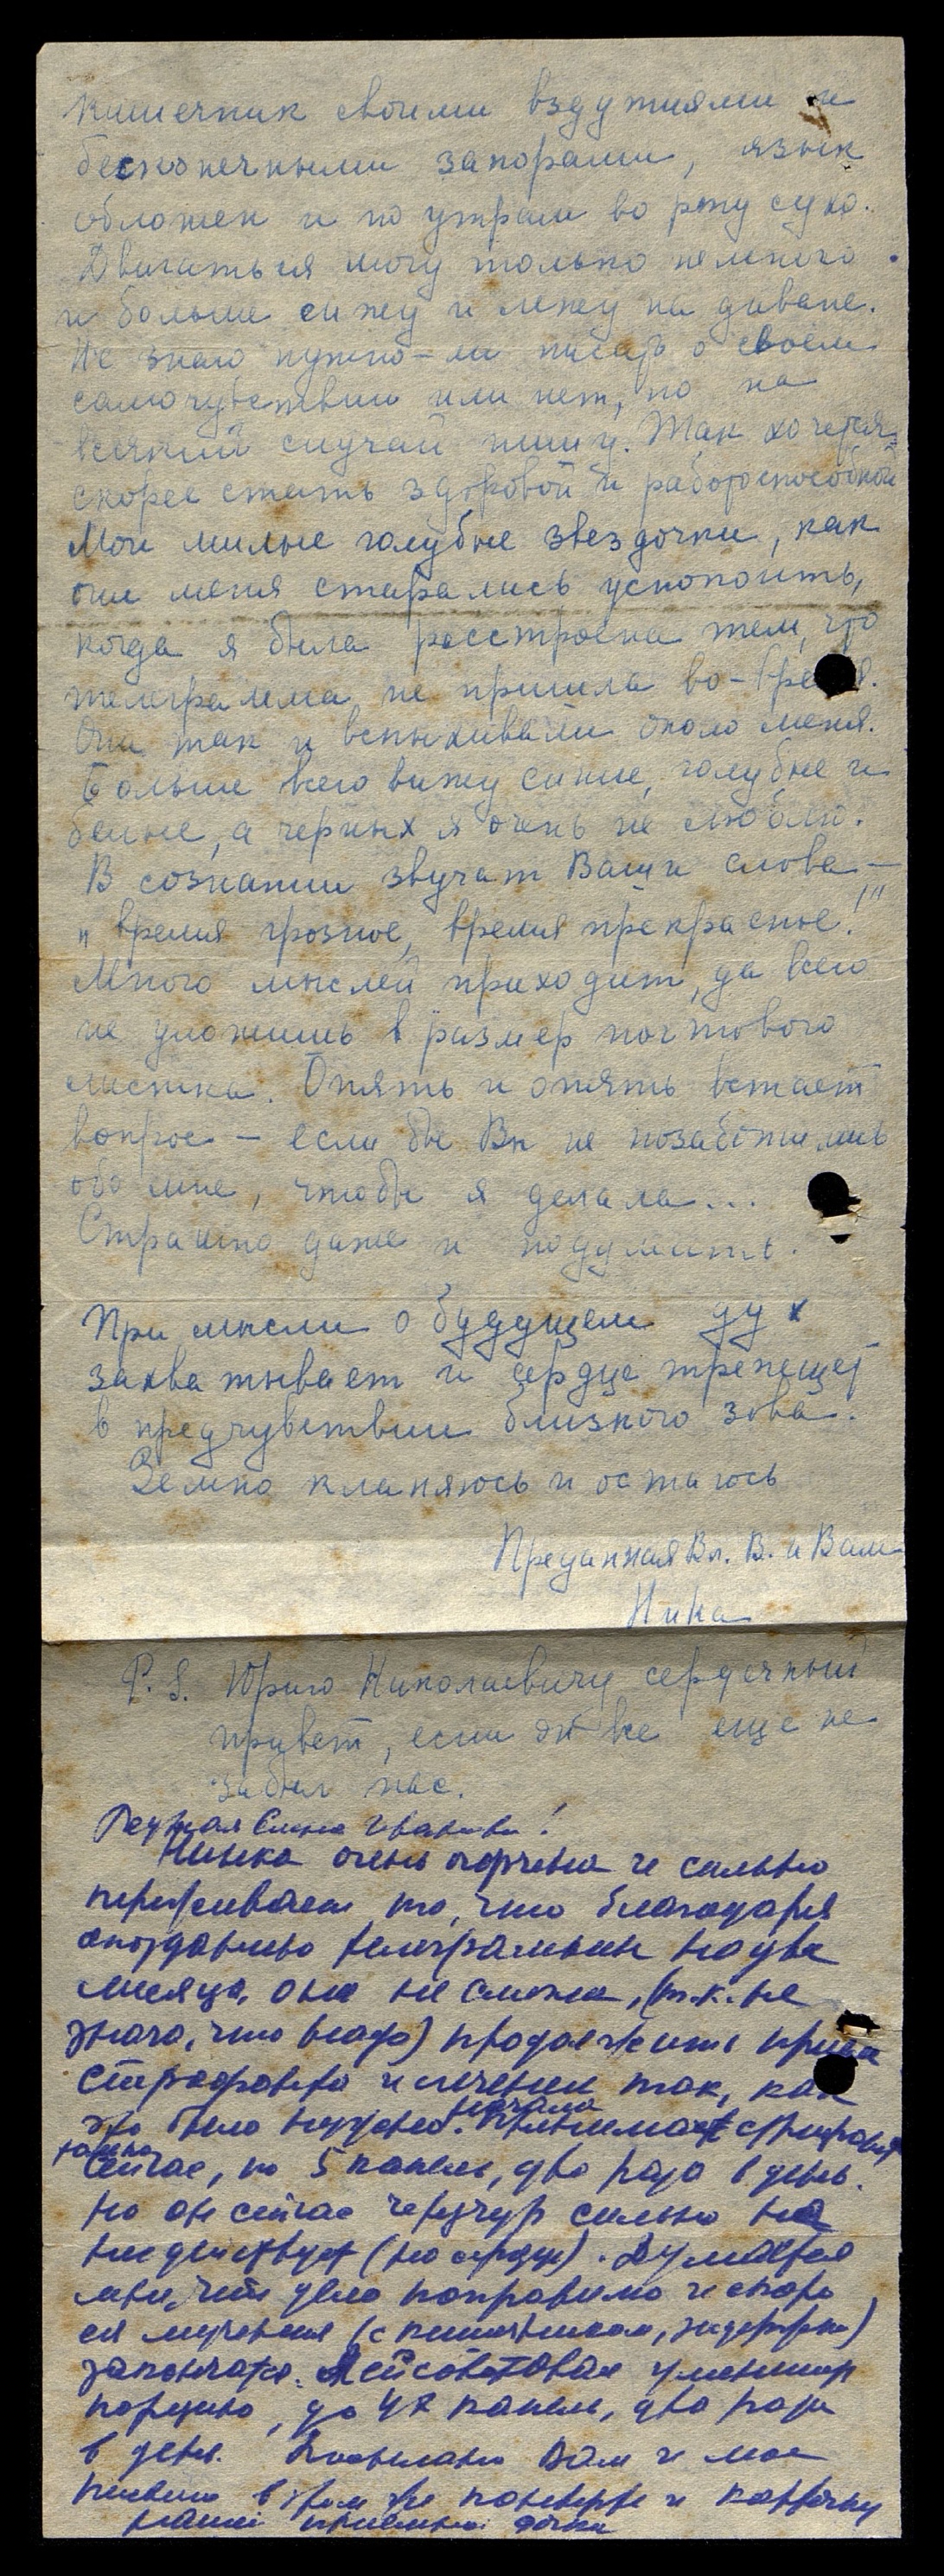 кишечник своими вздутиями и
бесконечными запорами, язык
обложен и по утрам во рту сухо.
Двигаться могу только немного
и больше сижу и лежу на диване.
Не знаю нужно-ли писать о своём
самочувствии или нет, но на
всякий случай пишу. Так хочется
скорее стать здоровой и работоспособной
Мои милые голубые звездочки, как
они меня старались успокоить,
когда я была расстроена тем, что
телеграмма не пришла во-время.
Они так и вспыхивали около меня.
Больше всего вижу синие, голубые и
белые, а черных я очень не люблю.
В сознании звучат Ваши слова —
„время грозное, время прекрасное!"
Много мыслей приходит, да всего
не уложишь в размер почтового
листка. Опять и опять встает
вопрос — если бы Вы не позаботились
обо мне, чтобы я делала...
Страшно даже и подумать.
При мысли о будущем дух
захватывает и сердце трепещет
в предчувствии близкого зова.
Земно кланяюсь и остаюсь
Преданная Вл. В. и Вам
Ника
P. S. Юрию Николаевичу сердечный
привет, если он все еще не
забыл нас.
Родная Елена Ивановна!
Ника очень огорчена и сильно
переживает то, что благодаря
опозданию телеграммы на два
месяца, она не смогла, (т.к. не
знала, что надо) продолжить прием
строфанта и лечение так, как
это было нужно. начала принимать строфант
только
сейчас, по 5 капель, два раза в день.
Но он сейчас чересчур сильно на
нее действует (на сердце). Думается
мне, что дело поправимо и скоро
ея мучения (с кишечником,
закончатся. Я ей советовал уменьшить
порцию, до 4х капель, два раза
в день. Посылаю Вам и мое
письмо в этом же конверте и карточку
нашей приемной дочки